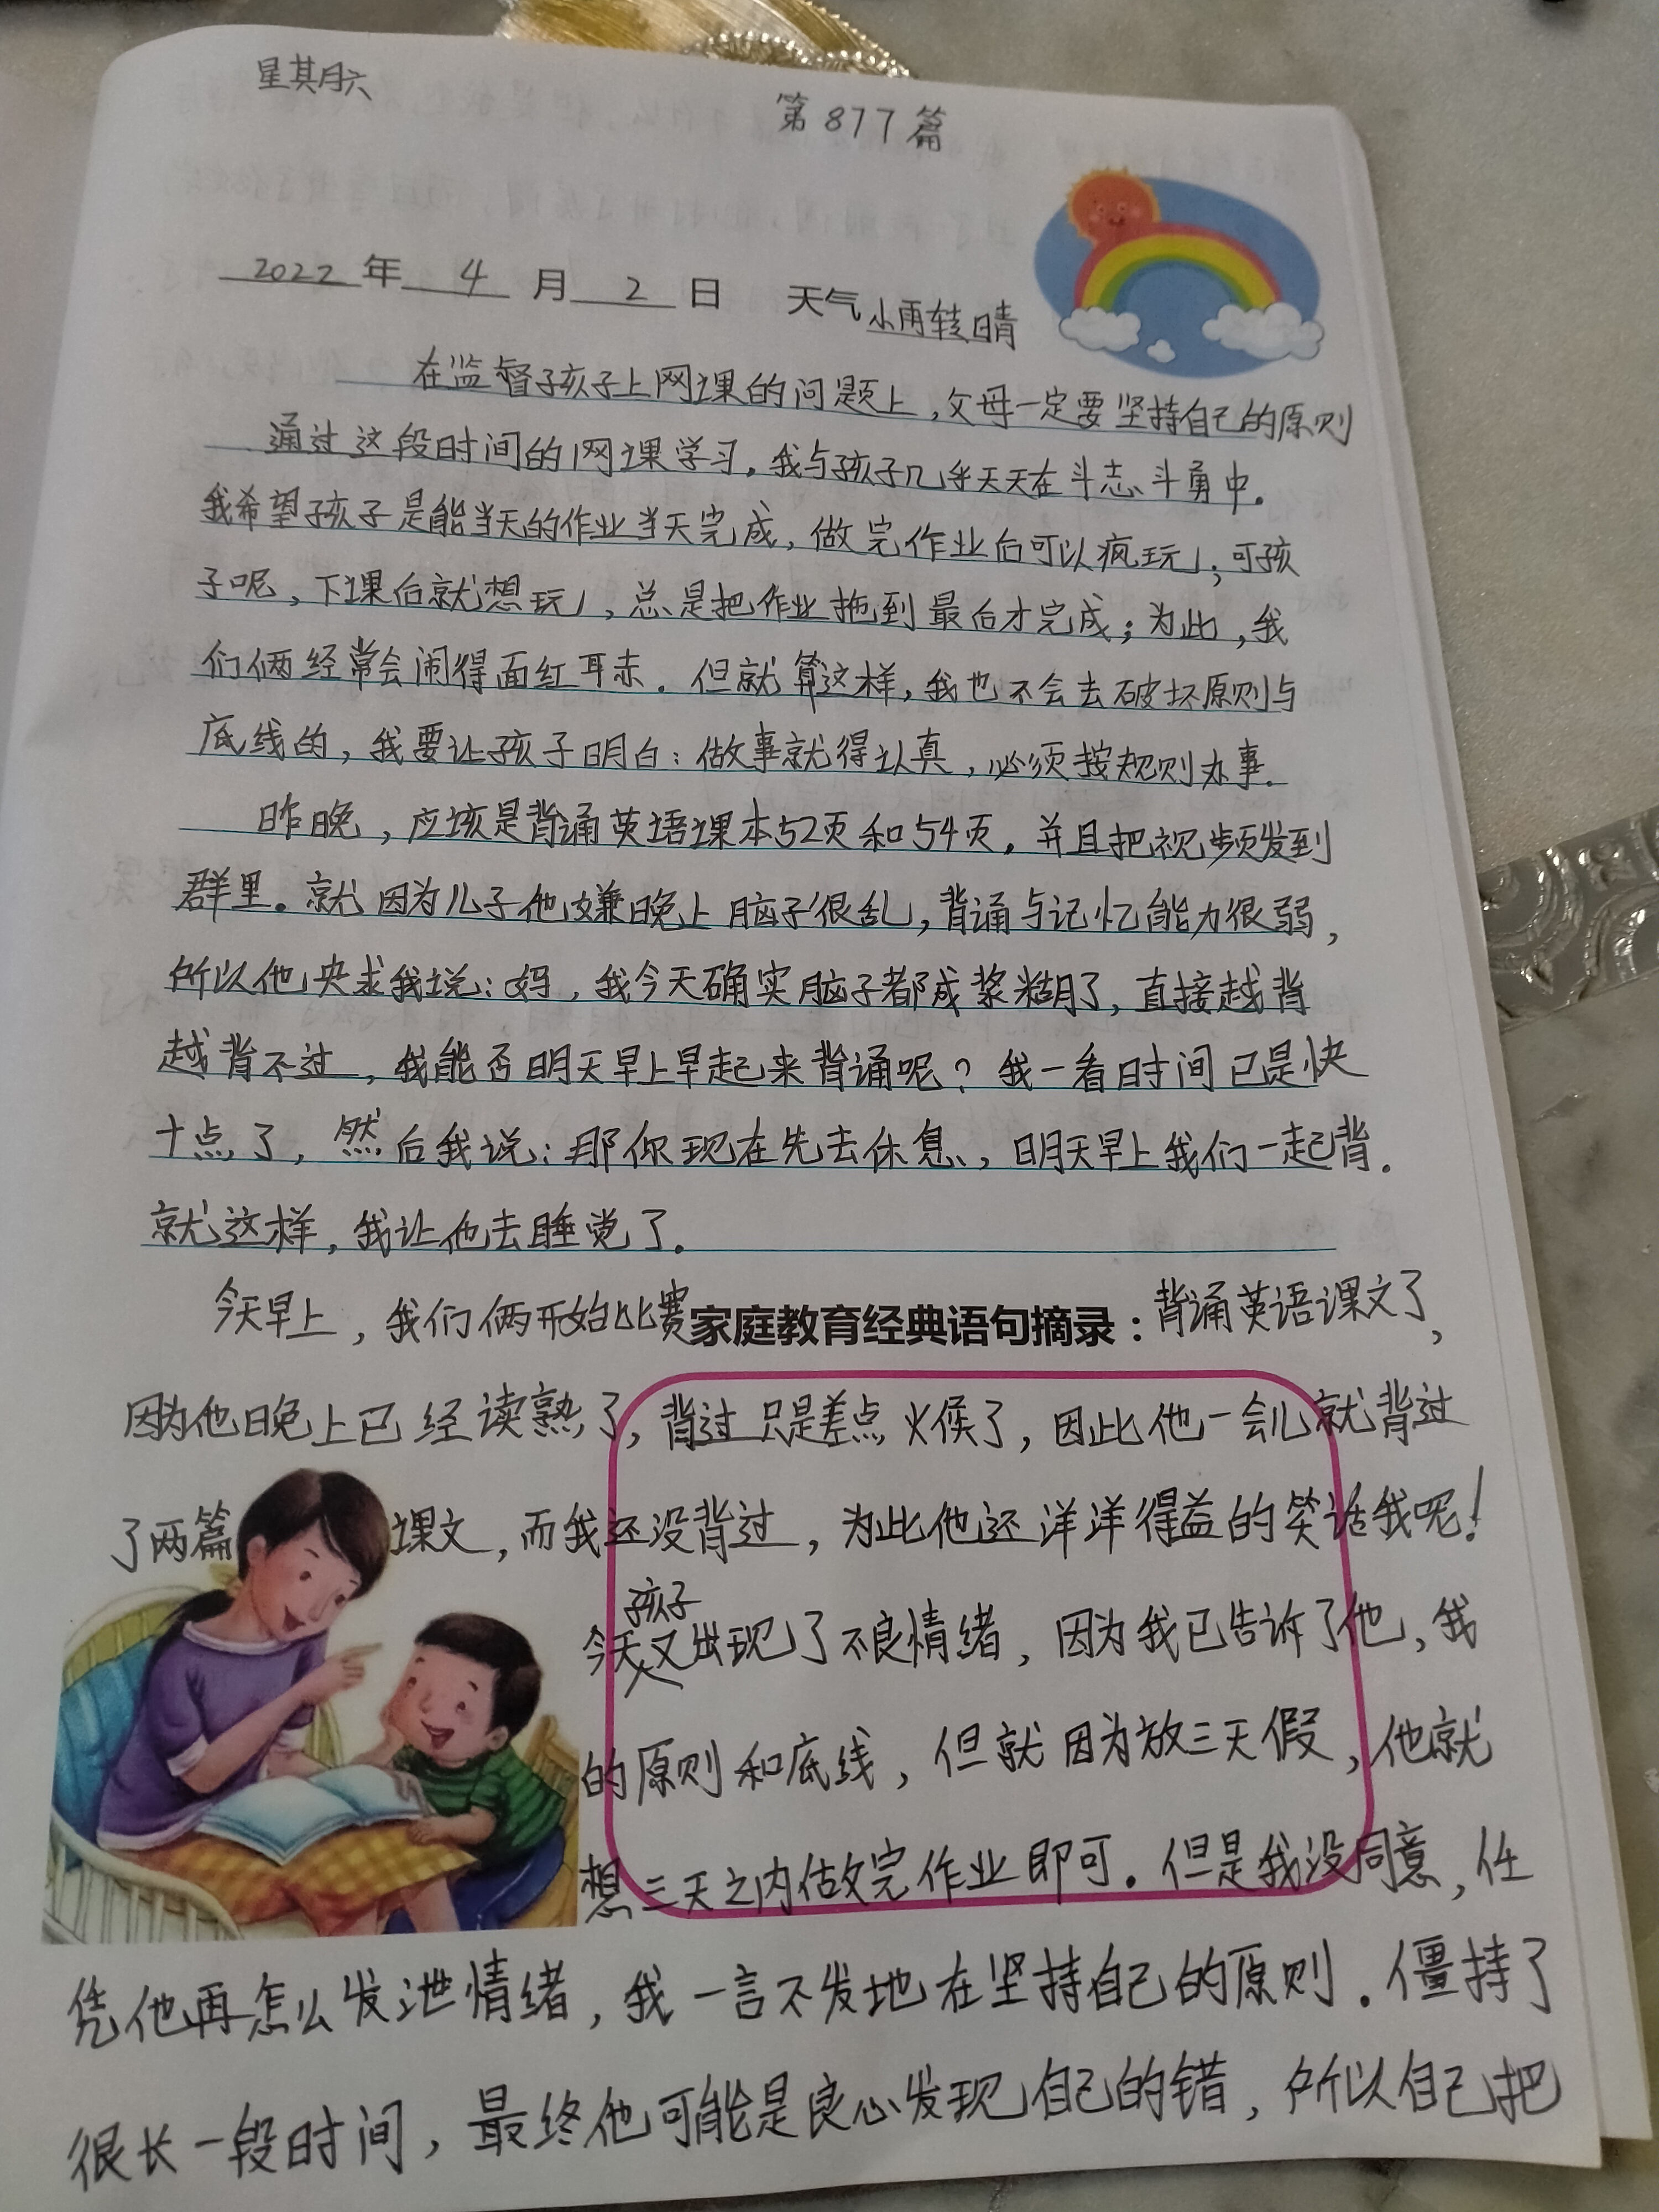 星期六
第877篇
2022年4月2日 天气小雨转晴
在监督孩子上网课的问题上,父母一定要坚持自己的原则
通过这段时间的网课学习,我与孩子几乎天天在斗志斗勇中。
我希望孩子是能当天的作业当天完成,做完作业后可以疯玩;可孩
子呢,下课后就想玩,总是把作业拖到最后才完成;为此,我
们俩经常会闹得面红耳赤。但就算这样,我也不会去破坏原则与
底线的,我要让孩子明白:做事就得认真,必须按规则办事。
昨晚,应该是背诵英语课本52页和54页。并且把视频发到
群里。就因为儿子他嫌晚上脑子很乱,背诵与记忆能力很弱,
所以他央求我说:妈,我今天确实脑子都成浆糊了,直接越背
越背不过,我能否明天早上早起来背诵呢?我一看时间已是快
十点了,然后我说:那你现在先去休息,明天早上我们一起背。
就这样,我让他去睡觉了。
今天早上,我们俩开始比赛家庭教育经典语句摘录:背诵英语课文了,
因为他晚上已经读熟了,背过只是差点火候了,因此他一会儿就背过
了两篇课文,而我还没背过,为此他还洋洋得益的笑话我呢!
孩子
今天又出现了不良情绪,因为我已告诉了他,我
的原则和底线,但就因为放三天假,他就
想三天之内做完作业即可。但是我没同意,任
凭他再怎么发泄情绪,我一言不发地在坚持自己的原则。僵持了
很长一段时间,最终他可能是良心发现自己的错,所以自己把